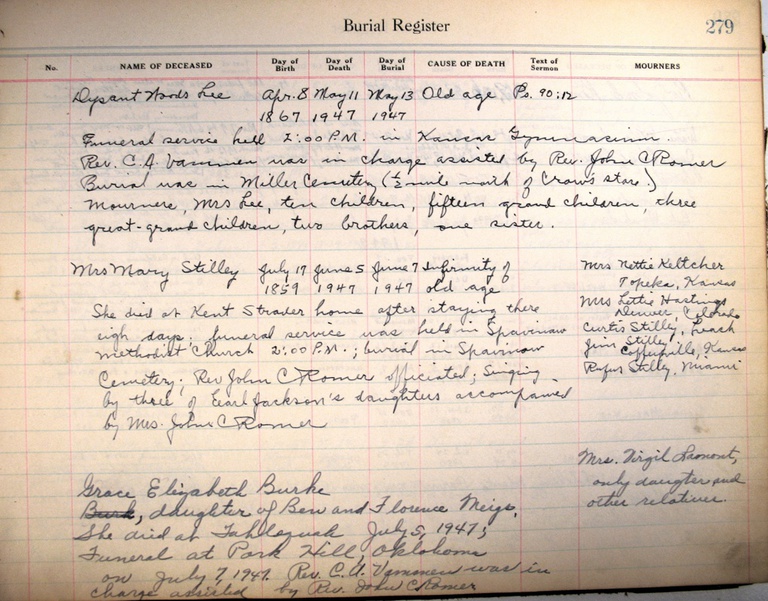 Burial Register
279
No. NAME OF DECEASED Day of Birth Day of Death Day of Burial CAUSE OF DEATH Text of Sermon MOURNERS
Dysant Woods Lee Apr. 8 May 11 May 13 Old age Ps. 90:12
1867 1947 1947
Funeral service held 2:00 P.M. in Kansas Gymnasium.
Rev. C.A. Vammen was in charge assisted by Rev. John C Romer
Burial was in Miller Cemetery (½ mile north of Crow's store.)
Mourners, Mrs Lee, ten children, fifteen grand children, three
great-grand children, two brothers, one sister.
Mrs Mary Stilley July 17 June 5 June 7 Infirmity of
1859 1947 1947 old age
She died at Kent Strader home after staying there
eigh days; funeral service was held in Spavinaw
Methodist Church 2:00 P.M.; burial in Spavinaw
Cemetery; Rev John C Romer officiated; Singing
by three of Earl Jackson's daughters accompanied
by Mrs. John C Romer
Mrs Nettie Keltcher
Topeka, Kansas
Mrs Lettie Hastings
Denver, Colorado
Curtis Stilley, Leach
Jim Stilley
Coffeyville, Kansas
Rufus Stilley, Miami
Grace Elizabeth Burke
Burk, daughter of Ben and Florence Meigs.
She died at Tahlequah July 5, 1947;
Funeral at Park Hill, Oklahoma
on July 7, 1947. Rev. C.A. Vammen was in
charge assisted by Rev. John C Romer
Mrs. Virgil
only daugter and
other relatives.